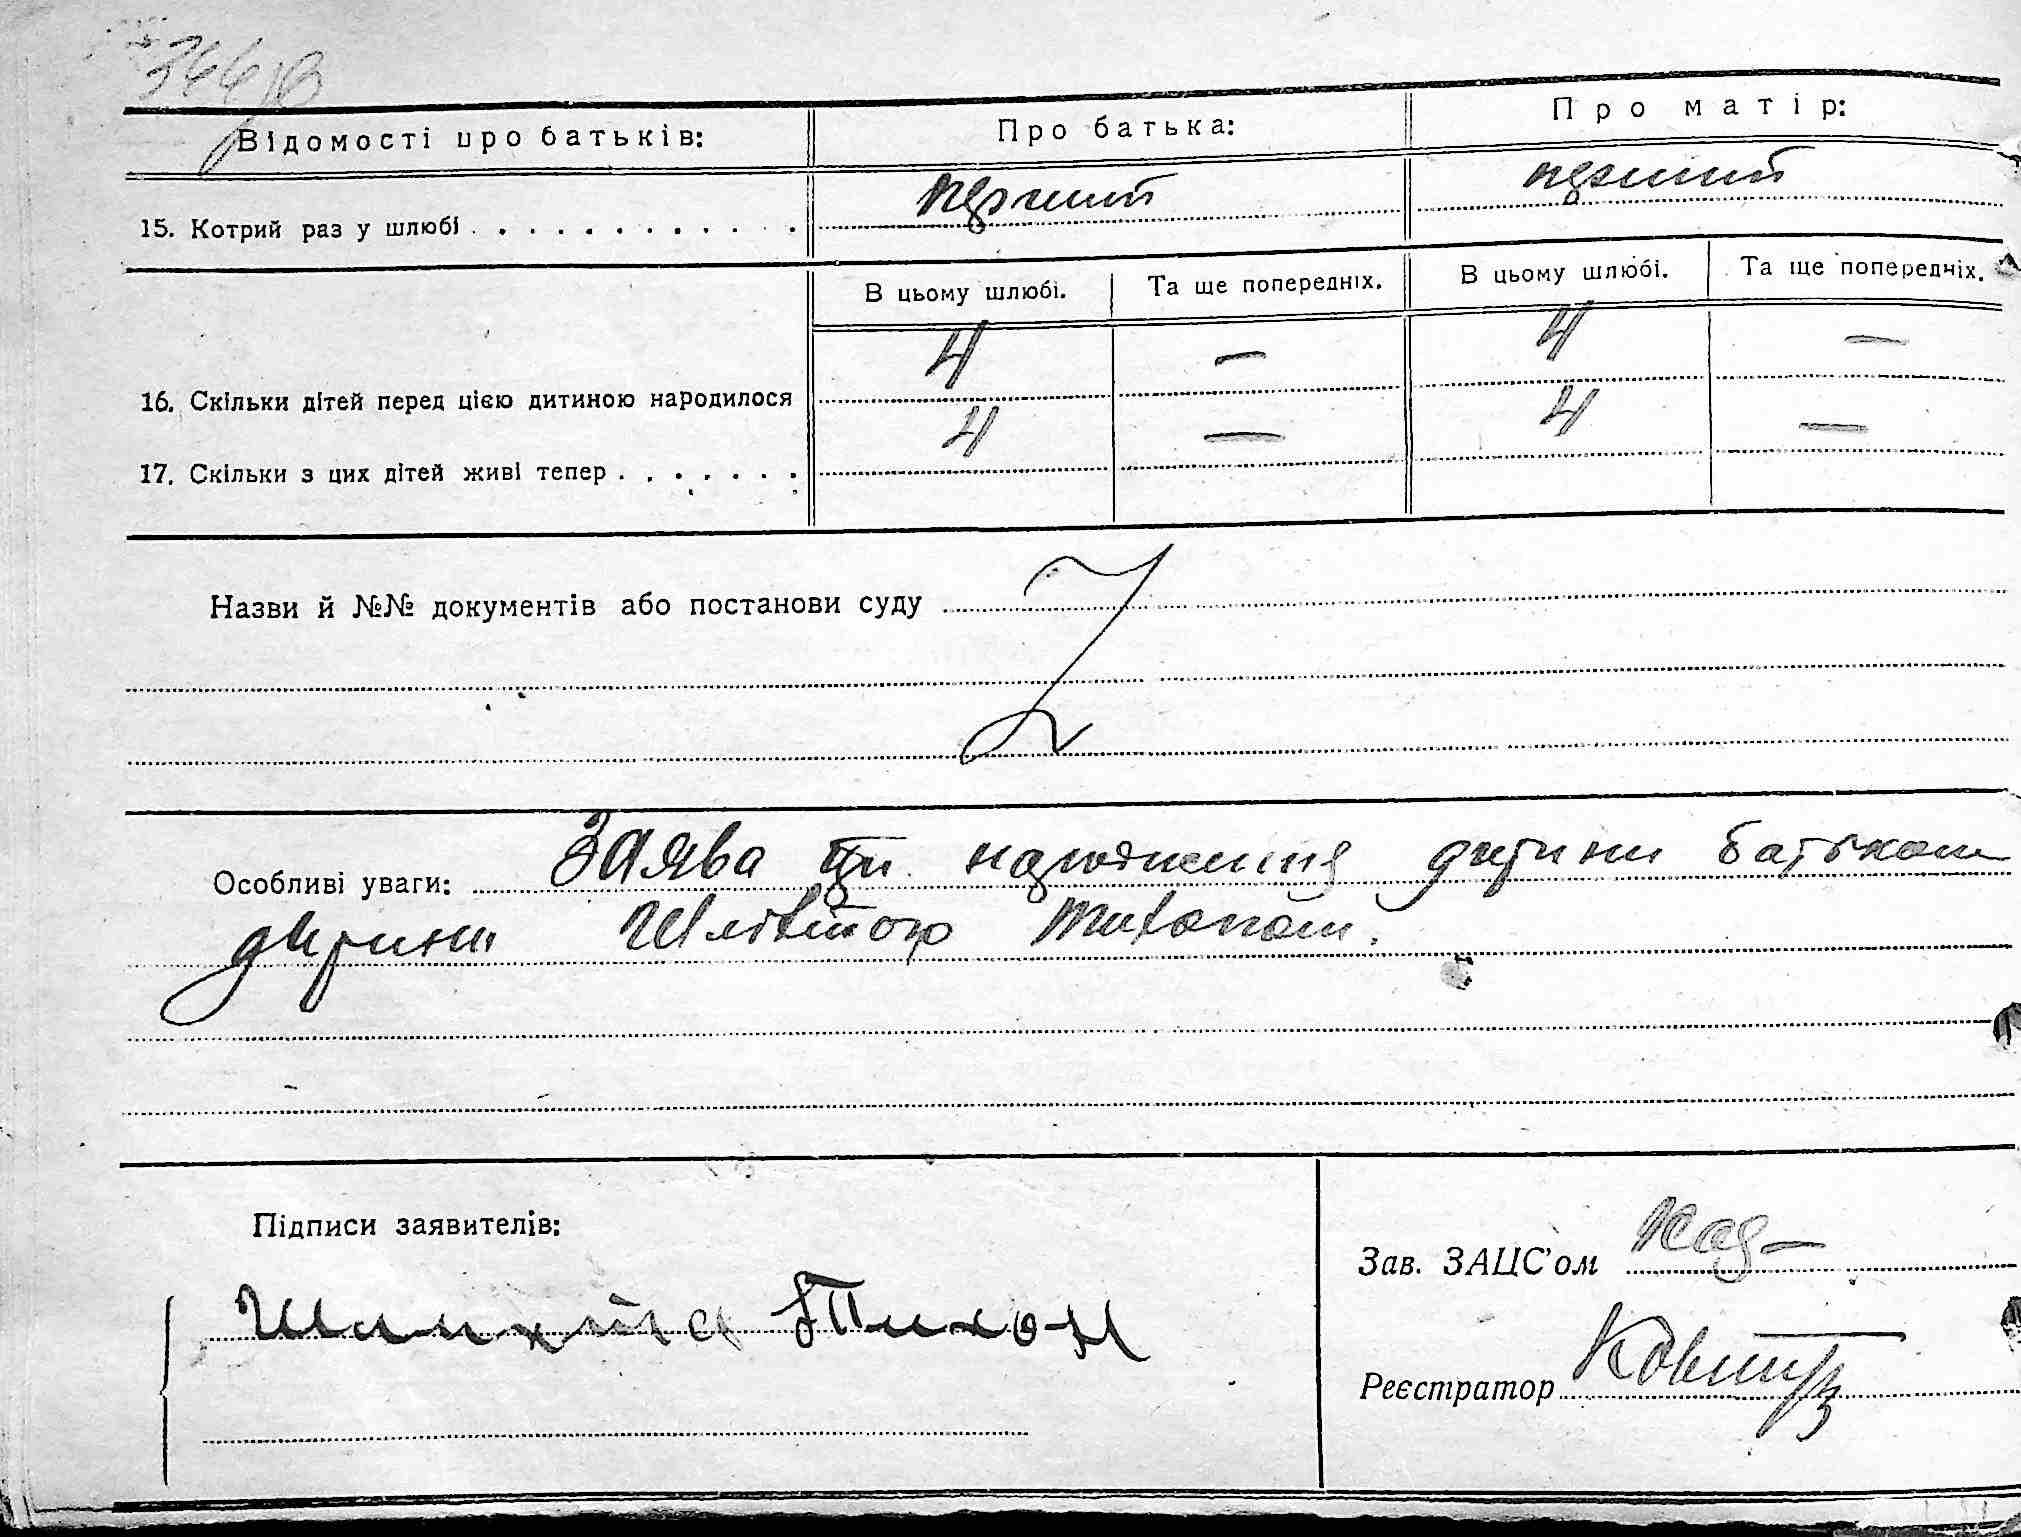 Відомості про батьків:
Про батька:
Про матір:
15. Котрий раз у шлюбі
перший
перший
В цьому шлюбі.
Та ще попередніх.
В цьому шлюбі.
Та ще попередніх.
16. Скільки дітей перед цією дитиною народилося
4 — 4 —
17. Скільки з цих дітей живі тепер
4 — 4 —
Назви й №№ документів або постанови суду
Особливі уваги: Заява народження дитини батьком
дитини Тихоном.
Підписи заявителів:
Тихон
Зав. ЗАЦС'ом
Реєстратор